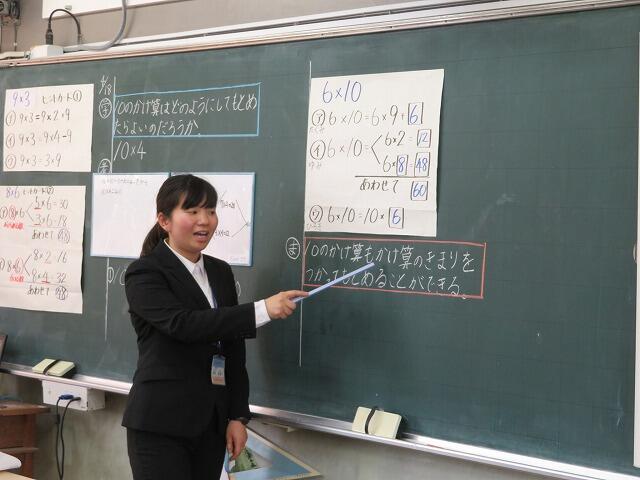 9×3 ヒントカード①
㋐ 9×3=9×2+9
㋑ 9×3=9×4-9
㋒ 9×3=3×9
8×6 ヒントカード②
5×6=30
3×6=18
あわせて 48
8×2=16
8×4=32
あわせて 48
4/18
10のかけ算はどのようにしてもとめ
たらよいのだろうか。
10×4
6×10
㋐ 6×10=6×9+6
㋑ 6×10=
6×2=12
6×8=48
あわせて 60
㋒ 6×10=10×6
ま
10のかけ算もかけ算のきまりを
つかってもとめることができる。